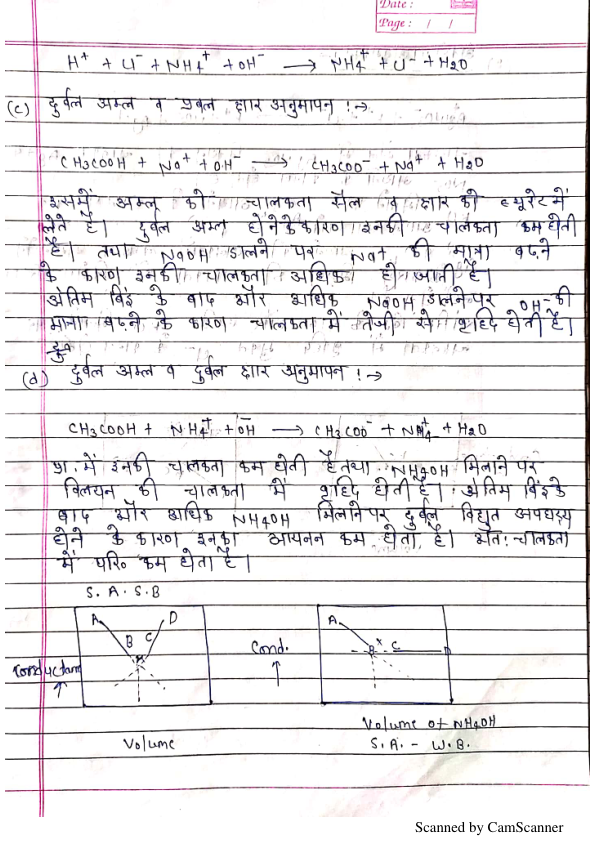 Date :
Page : / /
H⁺ + Cl⁻ + NH₄⁺ + OH⁻ ⟶ NH₄⁺ + Cl⁻ + H₂O
(c) दुर्बल अम्ल व प्रबल क्षार अनुमापन !→
CH₃COOH + Na⁺ + OH⁻ ⟶ CH₃COO⁻ + Na⁺ + H₂O
इसमें अम्ल को चालकता सेल व क्षार को ब्यूरेट में
लेते है। दुर्बल अम्ल होने के कारण इनकी चालकता कम होती
है। तथा NaOH डालने पर Na⁺ की मात्रा बढ़ने
के कारण इनकी चालकता अधिक हो जाती है।
अंतिम बिंदु के बाद और अधिक NaOH डालने पर OH⁻ की
मात्रा बढ़ने के कारण चालकता में तेजी से वृद्धि होती है।
(d) दुर्बल अम्ल व दुर्बल क्षार अनुमापन !→
CH₃COOH + NH₄⁺ + OH⁻ ⟶ CH₃COO⁻ + NH₄⁺ + H₂O
प्रा. में इनकी चालकता कम होती है तथा NH₄OH मिलाने पर
विलयन की चालकता में वृद्धि होती है। अंतिम बिंदु के
बाद और अधिक NH₄OH मिलाने पर दुर्बल विद्युत अपघट्य
होने के कारण इनका आयनन कम होता है। अतः चालकता
में परि० कम होता है।
S. A. S. B
A B C D
Conductam
Volume
Cond.
A x B C D
Volume of NH₄OH
S. A. - W. B.
Scanned by CamScanner